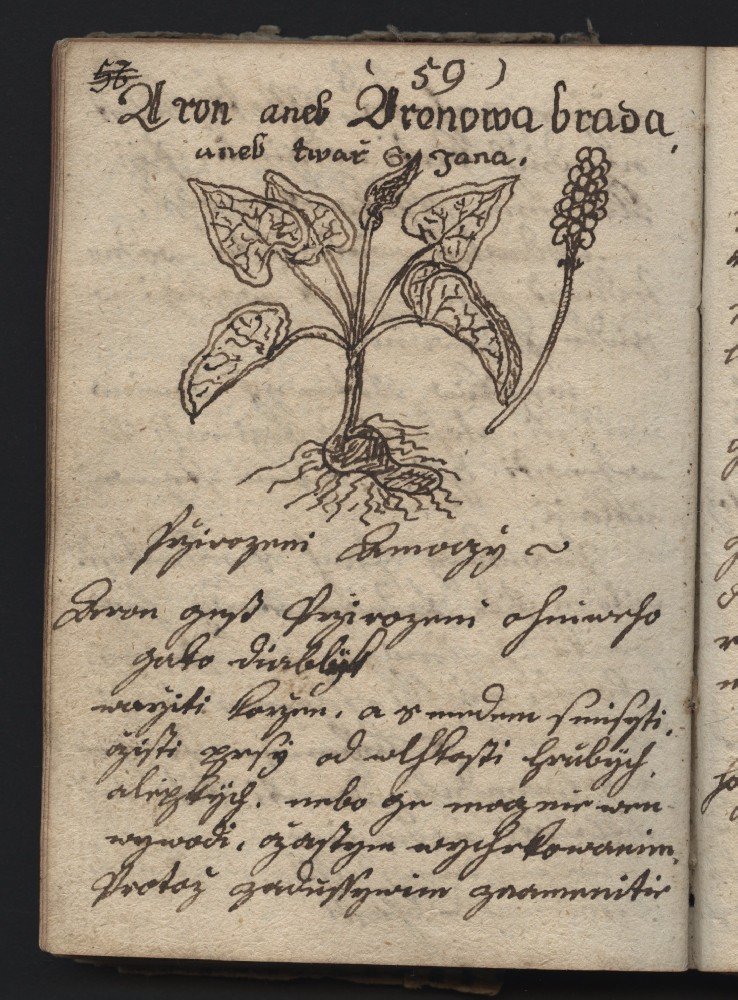 56
( 59 )
Aron aneb Aronowa brada
aneb twař S. Jana.
Přirozeni Amoczy ~
Aron gest Přirozeni ohniweho
gako diablik
wařiti kořen, a s medem smisyti,
čisti prsy od wlhkosti hrubých,
a lepkých, nebo ge mocznie wen
wywodi, častym wychrkowanim,
Protož zadussywim znamenitie